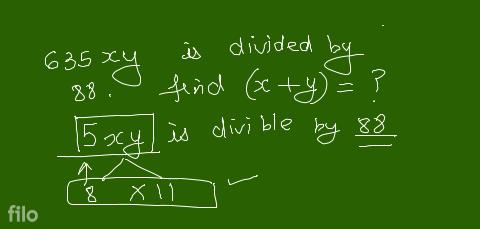 635xy is divided by
88. find (x+y) = ?
5xy is divible by 88
8 × 11
filo